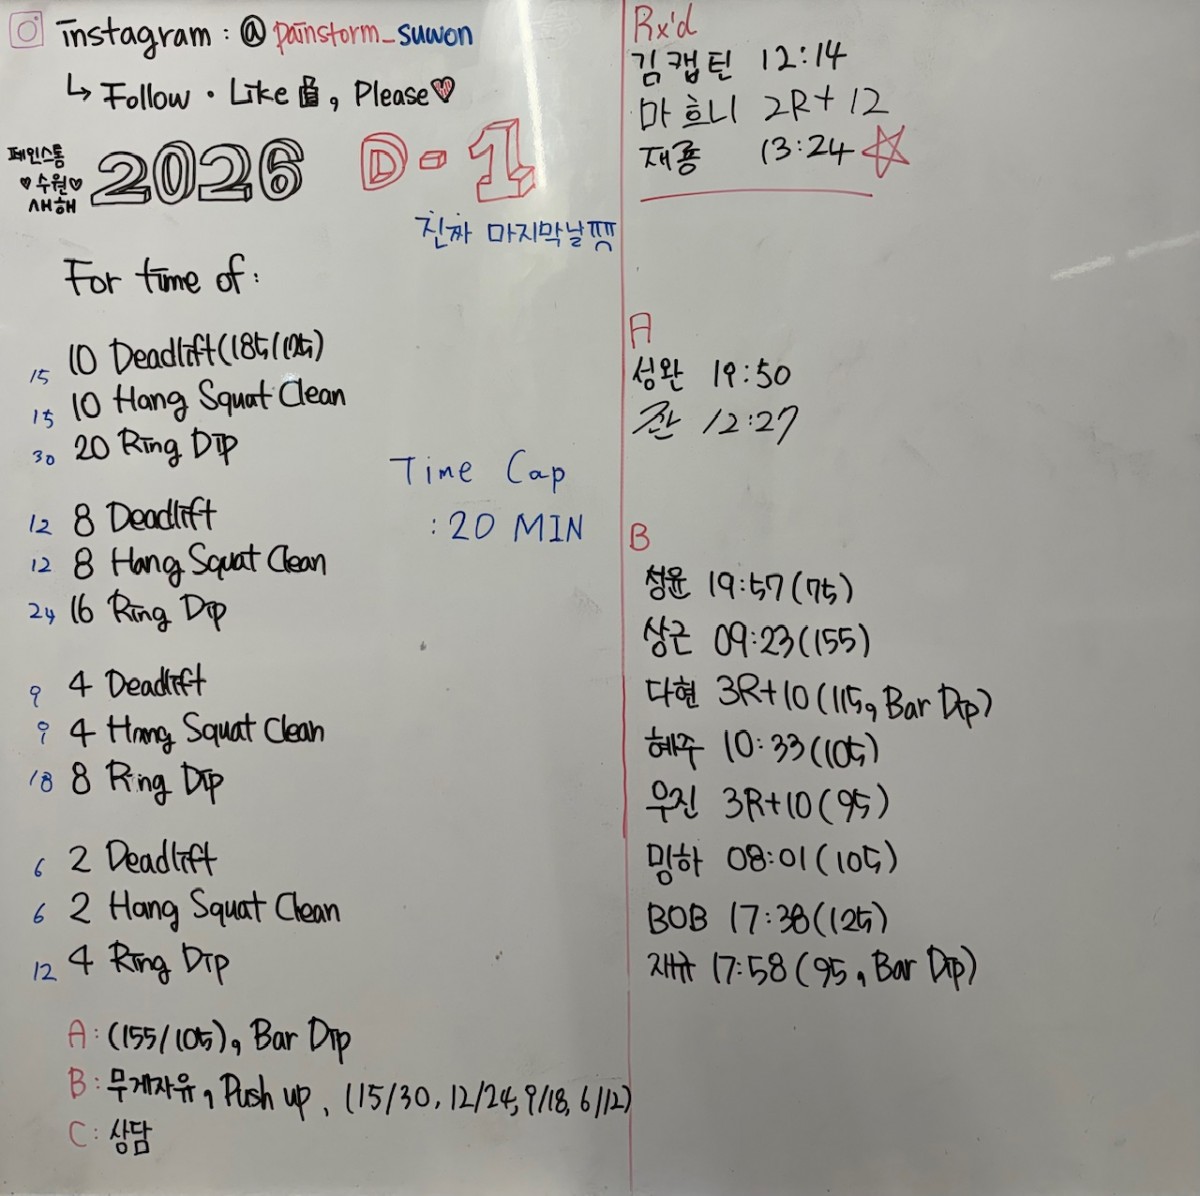 instagram : @painstorm_suwon
↳ Follow · Like 👍, Please♥
페인스톰
♥수원♡
새해
2026 D-1
진짜 마지막날ㅠㅠ
For time of :
15 10 Deadlift(185/125)
15 10 Hang Squat Clean
30 20 Ring Dip
12 8 Deadlift
12 8 Hang Squat Clean
24 16 Ring Dip
9 4 Deadlift
9 4 Hang Squat Clean
18 8 Ring Dip
6 2 Deadlift
6 2 Hang Squat Clean
12 4 Ring Dip
Time Cap
: 20 MIN
A : (155/105), Bar Dip
B : 무게자유, Push up, (15/30, 12/24, 9/18, 6/12)
C : 상담
Rx'd
김캡틴 12:14
마흐니 2R+12
재룡 13:24 ☆
A
성완 19:50
쫜 12:27
B
성윤 19:57(75)
상근 09:23(155)
다현 3R+10(115, Bar Dip)
혜주 10:33(105)
우진 3R+10(95)
밍하 08:01(105)
BOB 17:38(125)
재규 17:58(95, Bar Dip)